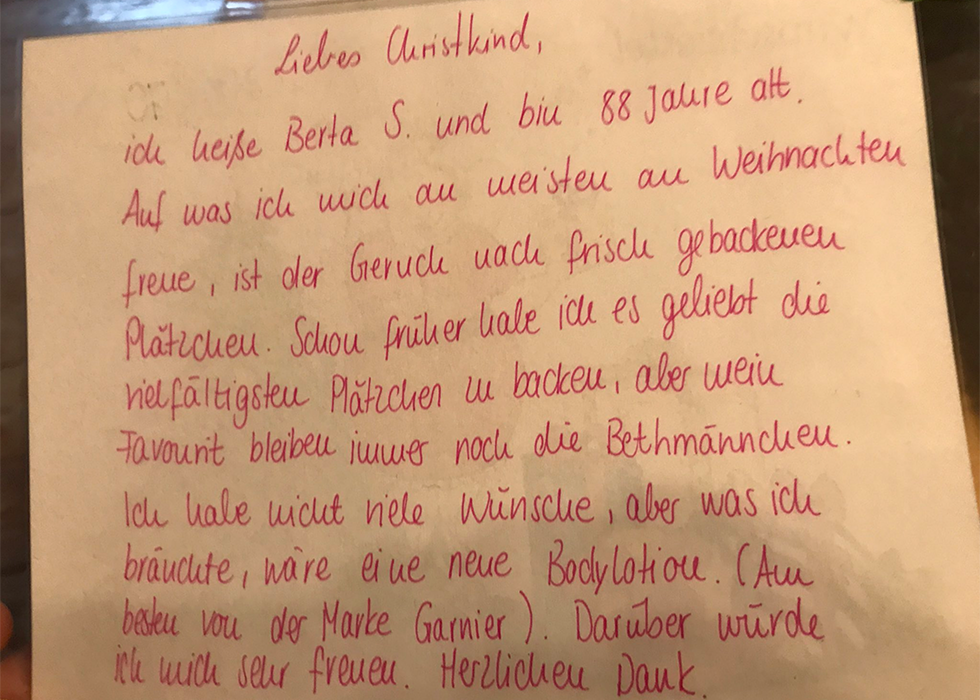 Liebes Christkind,
ich heiße Berta S. und bin 88 Jahre alt.
Auf was ich mich am meisten an Weihnachten
freue, ist der Geruch nach frisch gebackenen
Plätzchen. Schon früher habe ich es geliebt die
vielfältigsten Plätzchen zu backen, aber mein
Favourit bleiben immer noch die Bethmännchen.
Ich habe nicht viele Wünsche, aber was ich
bräuchte, wäre eine neue Bodylotion. (Am
besten von der Marke Garnier). Darüber würde
ich mich sehr freuen. Herzlichen Dank.